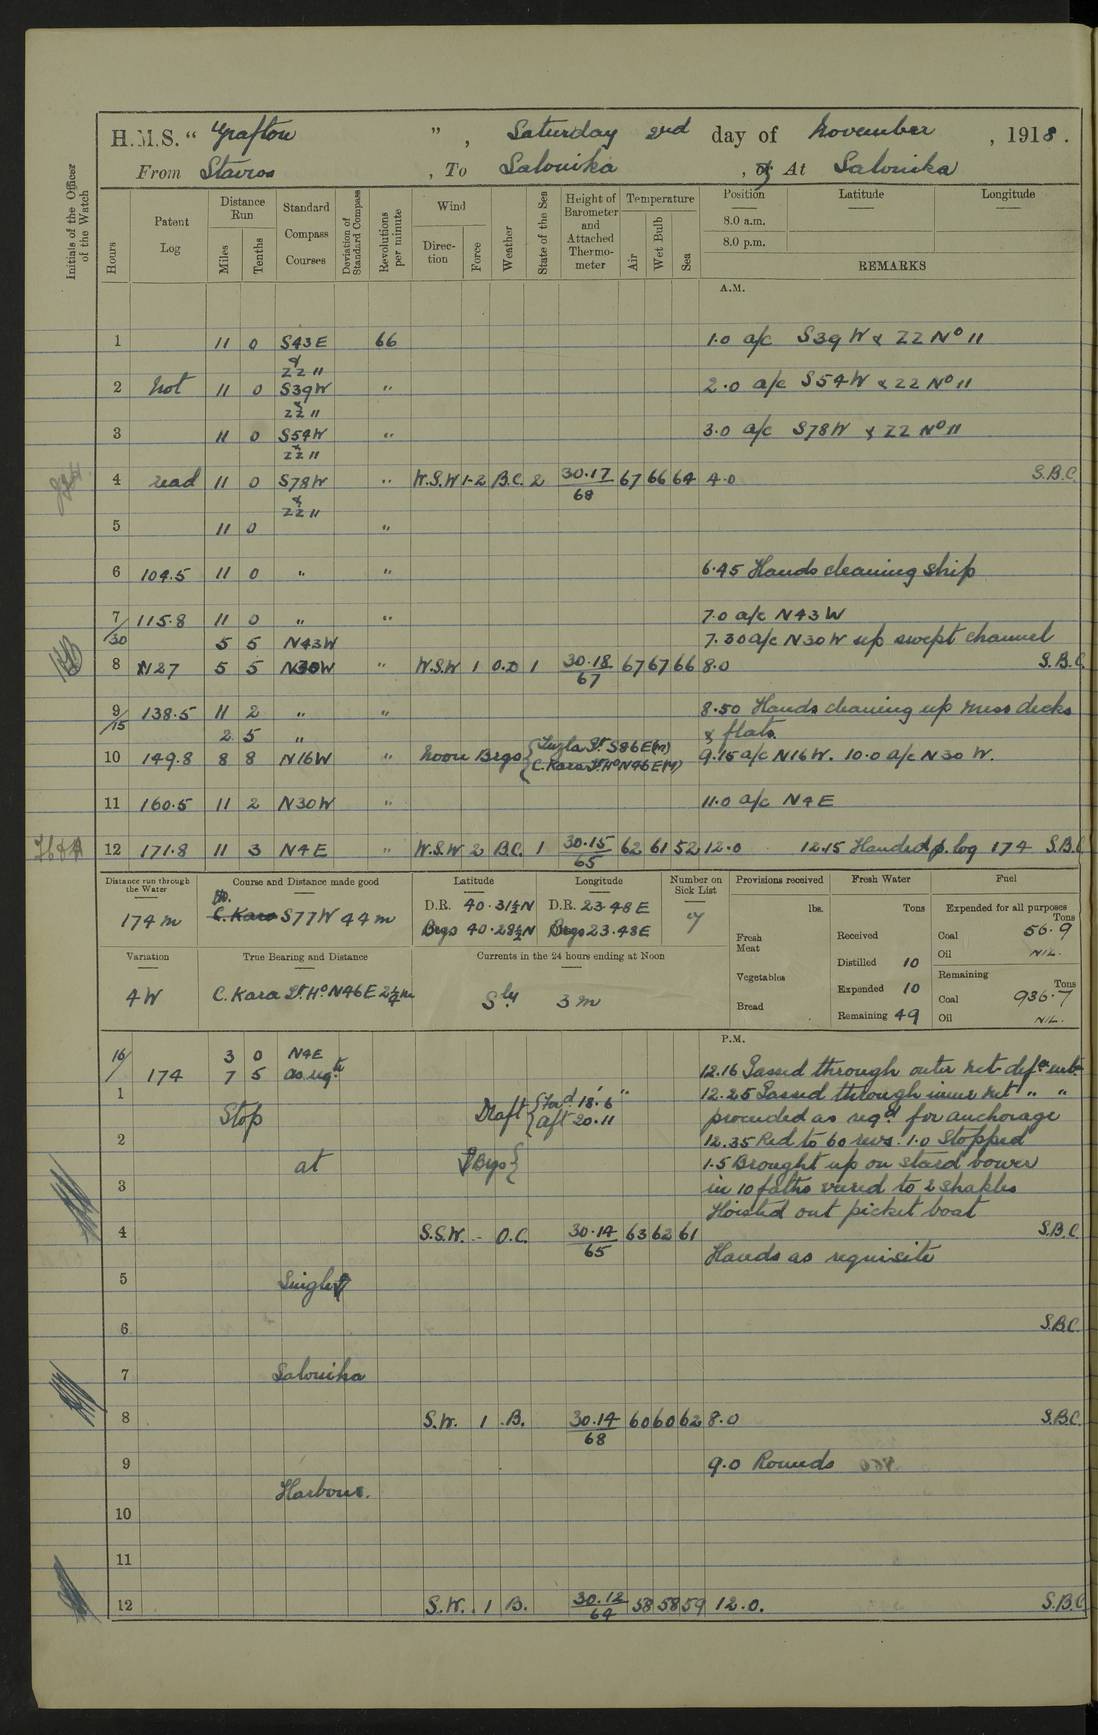 H.M.S. “ Grafton ” , Saturday 2nd day of November , 1918.
From Stavros , To Salonika , or At Salonika
Initials of the Officer of the Watch
Hours
Patent Log
Distance Run
Miles
Tenths
Standard Compass Courses
Deviation of Standard Compass
Revolutions per minute
Wind
Direction
Force
Weather
State of the Sea
Height of Barometer and Attached Thermometer
Temperature
Air
Wet Bulb
Sea
Position
8.0 a.m.
8.0 p.m.
Latitude
Longitude
REMARKS
A.M.
1 11 0 S43E 66 1.0 a/c S39W & ZZ No 11
& ZZ 11
2 Not 11 0 S39W " 2.0 a/c S54W & ZZ No 11
& ZZ 11
3 11 0 S54W " 3.0 a/c S78W & ZZ No 11
& ZZ 11
4 read 11 0 S78W " W.S.W 1-2 B.C. 2 30.17/68 67 66 64 4.0 S.B.C.
& ZZ 11
5 11 0 "
6 104.5 11 0 " " 6.45 Hands cleaning ship
7 115.8 11 0 " " 7.0 a/c N43W
/30 5 5 N43W 7.30 a/c N30W up swept channel
8 127 5 5 N30W " W.S.W 1 O.D 1 30.18/67 67 67 66 8.0 S.B.C.
9 138.5 11 2 " " 8.50 Hands cleaning up mess decks
/15 2 5 " & flats.
10 149.8 8 8 N16W " Noon Brgs { Tuzla Pt S86E(M) 9.15 a/c N16W. 10.0 a/c N30W.
C. Kara Lt Ho N46E(M)
11 160.5 11 2 N30W " 11.0 a/c N4E
12 171.8 11 3 N4E " W.S.W 2 B.C. 1 30.15/65 62 61 52 12.0 12.15 Handed p. log 174 S.B.C
Distance run through the Water
174 m
Course and Distance made good
C. Kara S77W 44 m
Latitude
D.R. 40.31½N
Brgs 40.28½N
Longitude
D.R. 23.48E
Brgs 23.48E
Number on Sick List
7
Provisions received
lbs.
Fresh Meat
Vegetables
Bread
Fresh Water
Tons
Received
Distilled 10
Expended 10
Remaining 49
Fuel
Expended for all purposes
Tons
Coal 56.9
Oil NIL.
Remaining
Tons
Coal 936.7
Oil NIL.
Variation
4W
True Bearing and Distance
C. Kara Lt. Ho N46E 2¼m
Currents in the 24 hours ending at Noon
Sly 3 m
P.M.
16/ 3 0 N4E 12.16 Passed through outer net defce
174 7 5 as reqte
1 12.25 Passed through inner net " "
Stop Draft { Ford 18'.6" proceeded as reqd for anchorage
Aft 20.11
2 12.35 Red to 60 revs. 1.0 Stopped
at Brgs { 1.5 Brought up on stard bower
3 in 10 faths veered to 2 shakles
Hoisted out picket boat
4 S.S.W. - O.C. 30.14/65 63 62 61 S.B.C.
Hands as requisite
5 Single
6 S.B.C.
7 Salonika
8 S.W. 1 B. 30.14/68 60 60 62 8.0 S.B.C.
9 9.0 Rounds
Harbour.
10
11
12 S.W. 1 B. 30.12/64 58 58 59 12.0. S.B.C